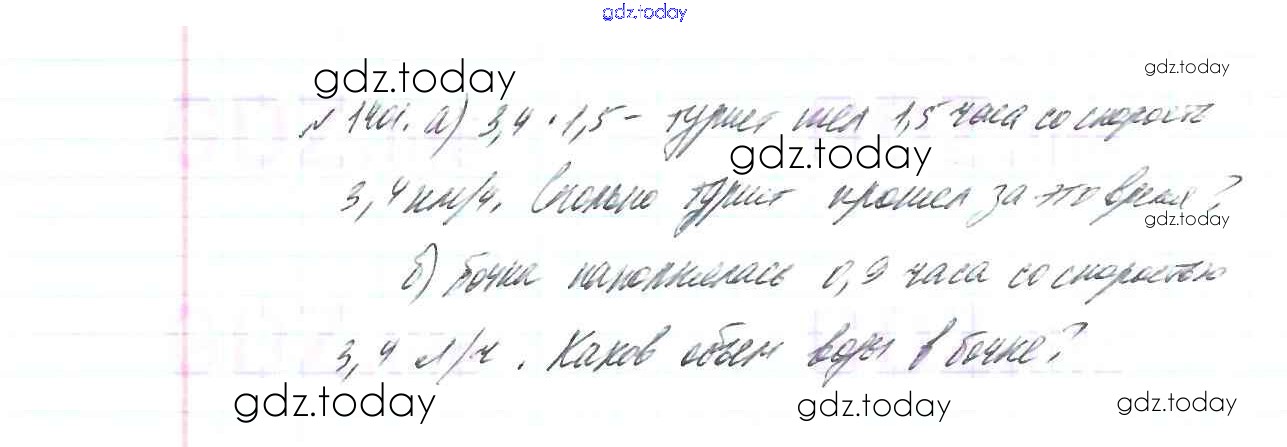 gdz.today
gdz.today
gdz.today
№ 1401. а) 3,4 · 1,5 – турист шел 1,5 часа со скорость
gdz.today
3,4 км/ч. Сколько турист прошел за это время?
gdz.today
б) бочка наполнялась 0,9 часа со скоростью
3,4 л/ч. Каков объем воды в бочке?
gdz.today
gdz.today
gdz.today